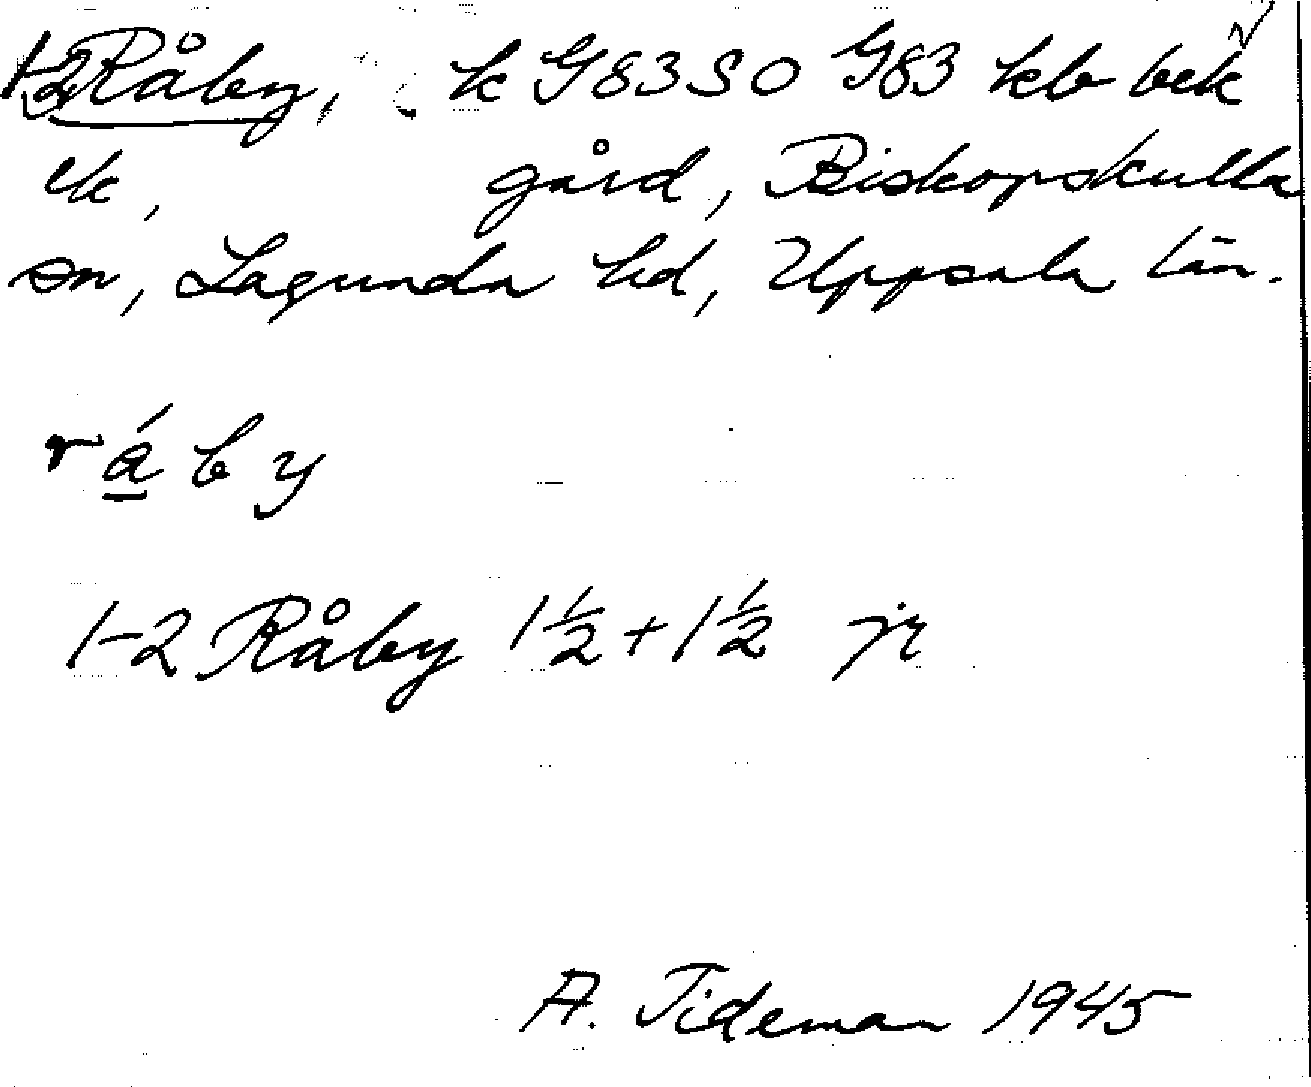 1-2 Råby, k G83SO G83 kb bek
ek, gård, Biskopskulla
sn, Lagunda hd, Uppsala län.
rá̱by
1-2 Råby 1½+1½ jr
A. Tideman 1945